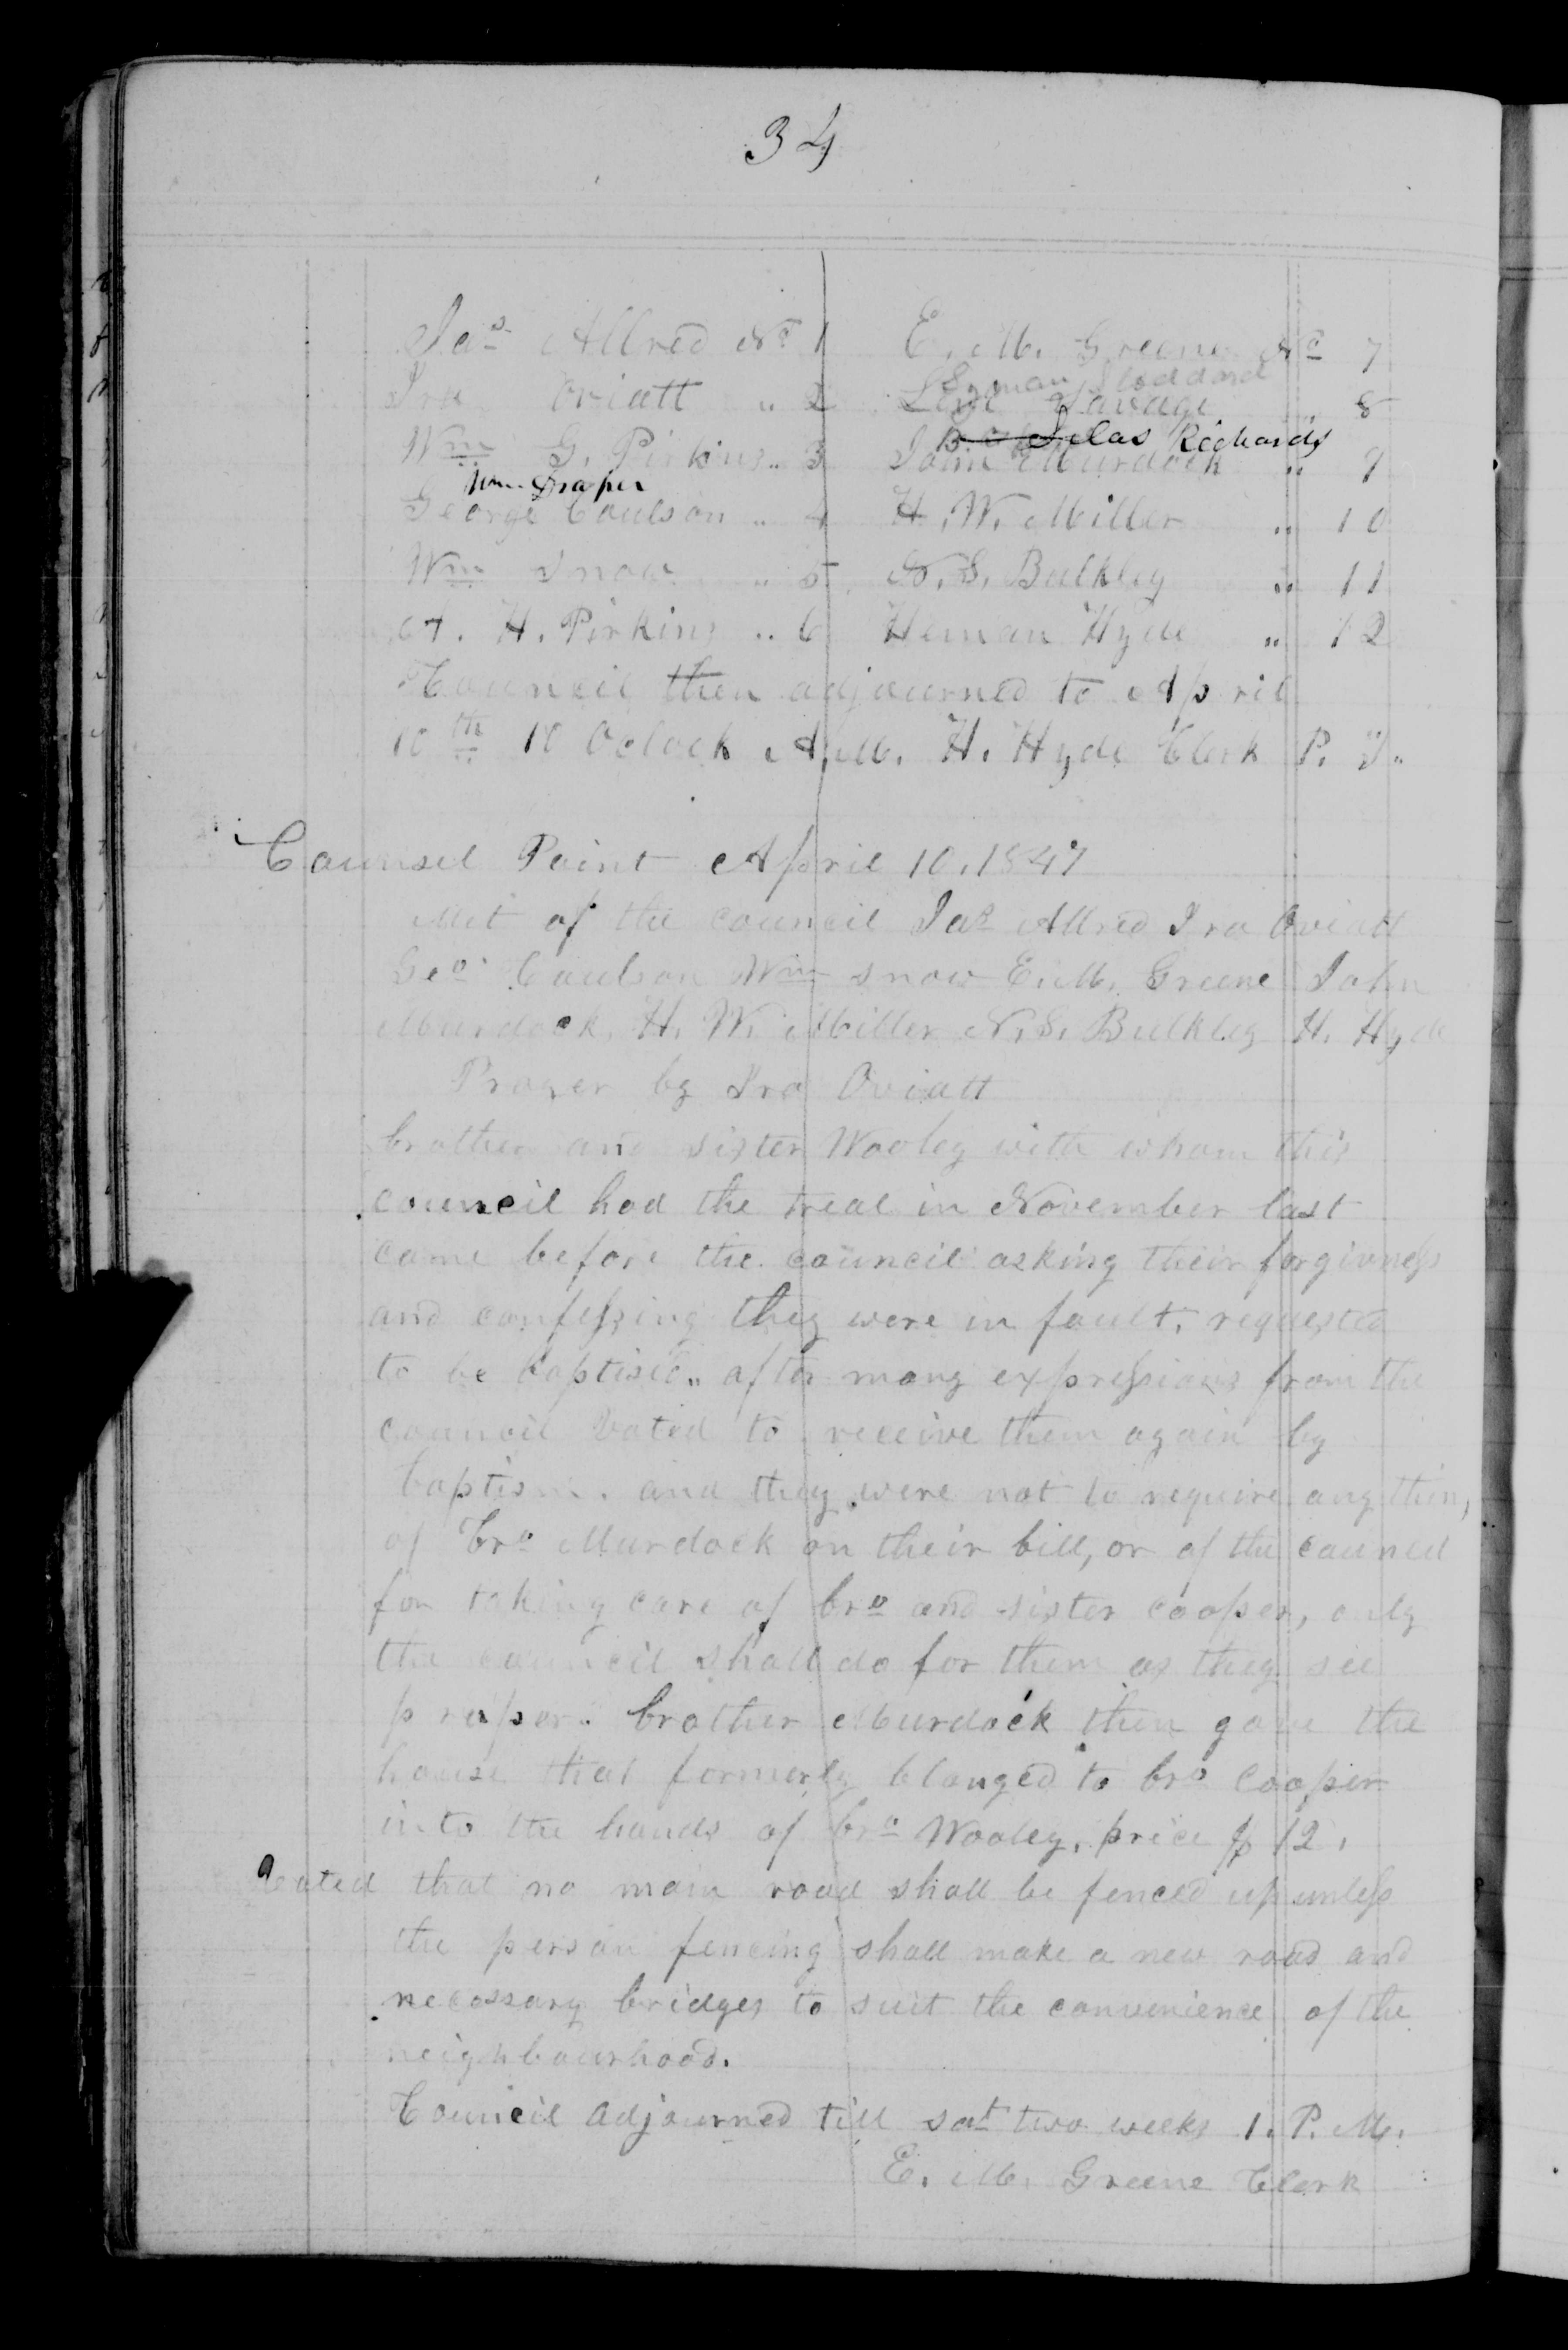 34
Jas Allred No 1 E. M. Greene No 7
Lyman Stoddard
Ira Oviatt " 2 Levi Savage " 8
Silas Richards
Wm G. Pirkins " 3 John Murdock " 9
Wm Draper
George Coulson " 4 H. W. Miller " 10
Wm Snow " 5 N. S. Bulkley " 11
A. H. Pirkins " 6 Heman Hyde " 12
Council then adjourned to April
10th 10 Oclock A.M. H. Hyde Clerk P. T.
Counsel Point April 10. 1847
Met of the council Jas Allred Ira Oviatt
Geo Coulson Wm Snow E. M. Greene John
Murdock, H. W. Miller N. S. Bulkley H. Hyde
Prayer by Ira Oviatt
brother and sister Wooley with whom this
council had the treal in November last
came before the council asking their forgivness
and confessing they were in fault, requested
to be baptised.. after many expressions from the
council Voted to receive them again by
baptism. and they were not to require any thin,
of Bro Murdock on their bill, or of the council
for taking care of bro and sister cooper, only
the council shall do for them as they see
proper. brother Murdock then gave the
house that formerly blonged to bro Cooper
into the hands of bro Wooley, price $12,
Voted that no main road shall be fenced up unless
the person fencing shall make a new road and
necossary bridges to suit the convenience of the
neighbourhood.
Council adjourned till sat two weeks 1. P. M.
E. M. Greene Clerk